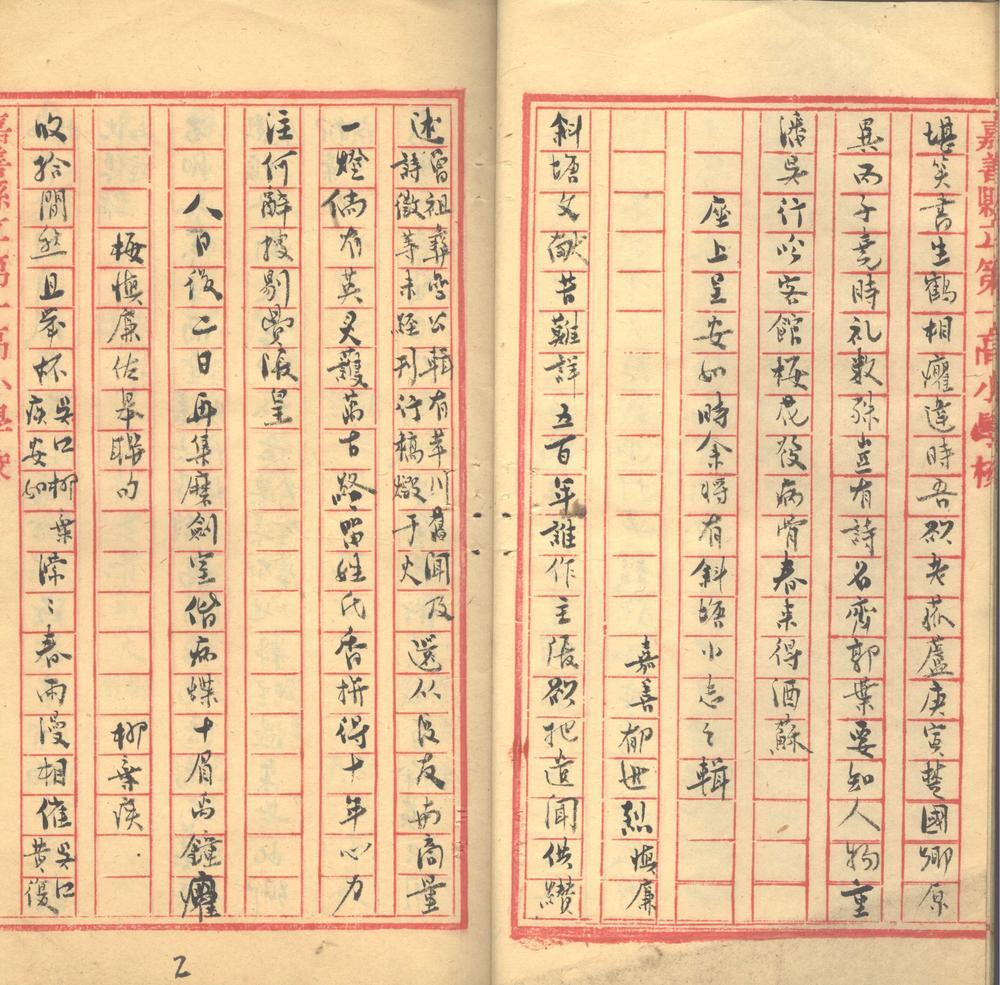 嘉善縣立第一高小學校
堪笑書生鶴相癯違時吾欲老菰蘆庚寅楚國卿原
異丙子堯時礼數殊豈有詩名齊郭業要知人物重
潘吳行吟客館梅花發病骨春來得酒蘇
座上呈安如時余將有斜塘小志之輯
嘉善郁世烈慎廉
斜塘文獻昔難詳五百年誰作主張欲把遺聞供纘
述曾祖彝齋公輯有萃川舊聞及
詩徵等未經刊行稿燬于火還從良友好商量
一燈倘有英灵護萬古路留姓氏香拚得十年心力
注何辭搜剔費張皇
人日後二日再集磨劍室偕病蝶十眉尚鐘癯
梅慎廉佐皋聯句
柳棄疾
收拾閒愁且舉杯吳江柳棄
疾安如 濛々春雨漫相催吳江
黄復
嘉善縣立第一高小學校
2